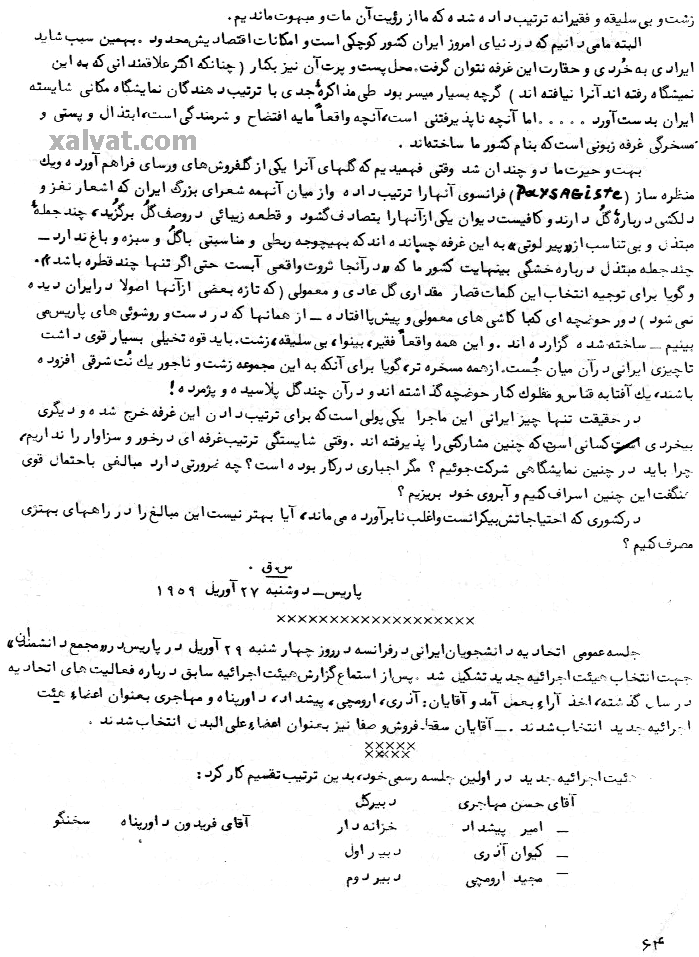 زشت و بی سلیقه و فقیرانه ترتیب داده شده که ما از رؤیت آن مات و مبهوت ماندیم.
البته ما می دانیم که در دنیای امروز ایران کشور کوچکی است و امکانات اقتصادیش محدود. بهمین سبب شاید
ایرادی به خُردی و حقارت این غرفه نتوان گرفت. محل پست و پرت آن نیز بکنار (چنانکه اکثر علاقمندانی که به این
نمیشگاه رفته اند آنرا نیافته اند) گرچه بسیار میسر بود طی مذاکرهٔ جدی با ترتیب دهندگان نمایشگاه مکانی شایسته
ایران بدست آورد ..... اما آنچه ناپذیرفتنی است، آنچه واقعاً مایه افتضاح و شرمندگی است، ابتذال و پستی و
مسخرگی غرفه زبونی است که بنام کشور ما ساخته اند.
xalvat.com
بهت و حیرت ما دو چندان شد وقتی فهمیدیم که گلهای آنرا یکی از گلفروش های ورسای فراهم آورده و یک
منظره ساز (PAYSAGISTE) فرانسوی آنها را ترتیب داده و از میان آنهمه شعرای بزرگ ایران که اشعار نغز و
دلکش درباره گُل دارند و کافیست دیوان یکی از آنها را بتصادف گشود و قطعه زیبائی در وصف گُل برگزید، چند جمله
مبتذل و بی تناسب از «پیر لوتی» به این غرفه چسپانده اند که بهیچوجه ربطی و مناسبتی با گُل و سبزه و باغ ندارد ــ
چند جمله مبتذل درباره خشگی بینهایت کشور ما که «در آنجا ثروت واقعی آبست حتی اگر تنها چند قطره باشد».
و گویا برای توجیه انتخاب این کلمات قصار مقداری گل عادی و معمولی (که تازه بعضی از آنها اصولا در ایران دیده
نمی شود) دور حوضچه ای که با کاشی های معمولی و پیش پا افتاده ــ از همانها که در دست و روشوئی های پاریس می
بینیم ــ ساخته شده گزارده اند. و این همه واقعاً فقیر، بینوا، بی سلیقه، زشت. باید قوه تخیلی بسیار قوی داشت
تا چیزی ایرانی در آن میان جُست. از همه مسخره تر، گویا برای آنکه به این مجموعه زشت و ناجور یك نُت شرقی افزوده
باشند، یك آفتابه قناس و مفلوك کنار حوضچه گذاشته اند و در آن چند گل پلاسیده و پژمرده!
در حقیقت تنها چیز ایرانی این ماجرا یکی پولی است که برای ترتیب دادن این غرفه خرج شده و دیگری
بیخردی کسانی است که چنین مشارکتی را پذیرفته اند. وقتی شایستگی ترتیب غرفه ای درخور و سزاوار را نداریم،
چرا باید در چنین نمایشگاهی شرکت جوئیم؟ مگر اجباری در کار بوده است؟ چه ضرورتی دارد مبالغی باحتمال قوی
هنگفت این چنین اسراف کنیم و آبروی خود بریزیم؟
در کشوری که احتیاجاتش بیکرانست و اغلب نابرآورده می ماند، آیا بهتر نیست این مبالغ را در راههای بهتری
مصرف کنیم؟
س.ق.
پاریس ــ دوشنبه ۲۷ آوریل ۱۹۵۹
××××××××××××××××××××
جلسه عمومی اتحادیه دانشجویان ایرانی در فرانسه در روز چهارشنبه ۲۹ آوریل در پاریس در «مجمع دانشمندان»
جهت انتخاب هیئت اجرائیه جدید تشکیل شد. پس از استماع گزارش هیئت اجرائیه سابق درباره فعالیت های اتحادیه
در سال گذشته، اخذ آراء بعمل آمد و آقایان: آذری، ارومچی، پیشداد، داورپناه و مهاجری بعنوان اعضاء هیئت
اجرائیه جدید انتخاب شدند. ــ آقایان سقط فروش و صفا نیز بعنوان اعضاء علی البدل انتخاب شدند.
×××××
×××××
هئیت اجرائیه جدید در اولین جلسه رسمی خود، بدین ترتیب تقسیم کار کرد:
آقای حسن مهاجری دبیرکل
ــ امیر پیشداد خزانه دار آقای فریدون داورپناه سخنگو
ــ کیوان آذری دبیر اول
ــ مجید ارومچی دبیر دوم
۶۴